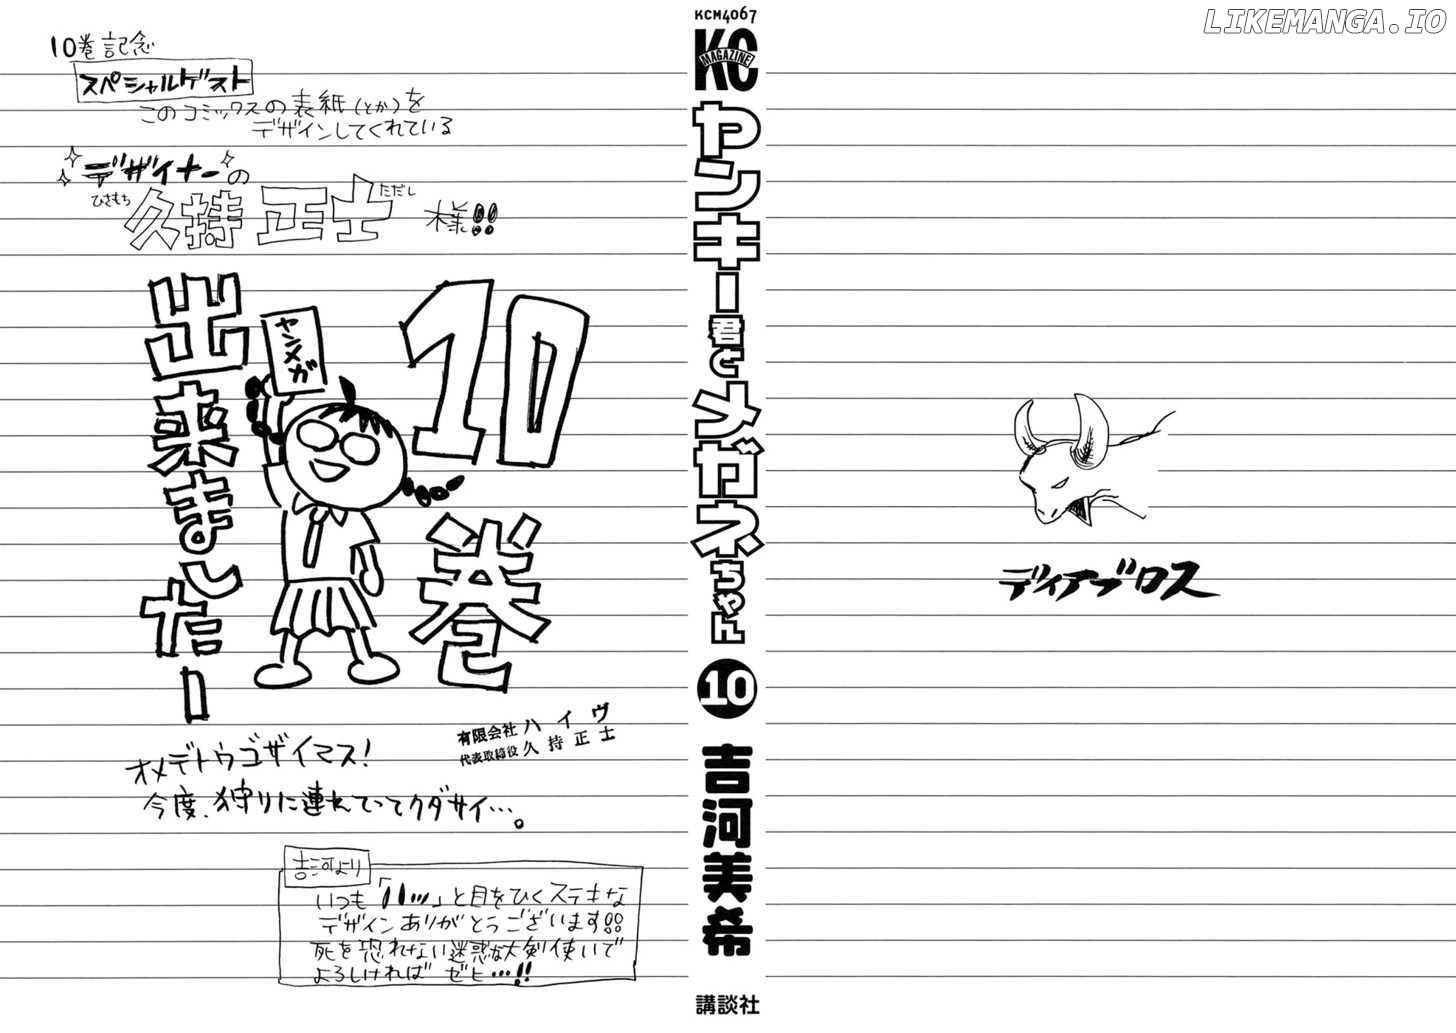 LIKEMANGA.IO
10巻記念
スペシャルゲスト
このコミックスの表紙(とか)を
デザインしてくれている
デザイナーの
ひさもち ただし
久持 正士 様!!
10巻
出来ましたー
ヤンメガ
有限会社 ハイヴ
代表取締役 久持正士
オメデトウゴザイマス!
今度、狩りに連れてってクダサイ…。
吉河より
いつも「ハッ」と目をひくステキな
デザインありがとうございます!!
死を恐れない迷惑な大剣使いで
よろしければ ゼヒ…!!
KCM4067
KC
MAGAZINE
ヤンキー君とメガネちゃん
10
吉河美希
講談社
ディアブロス